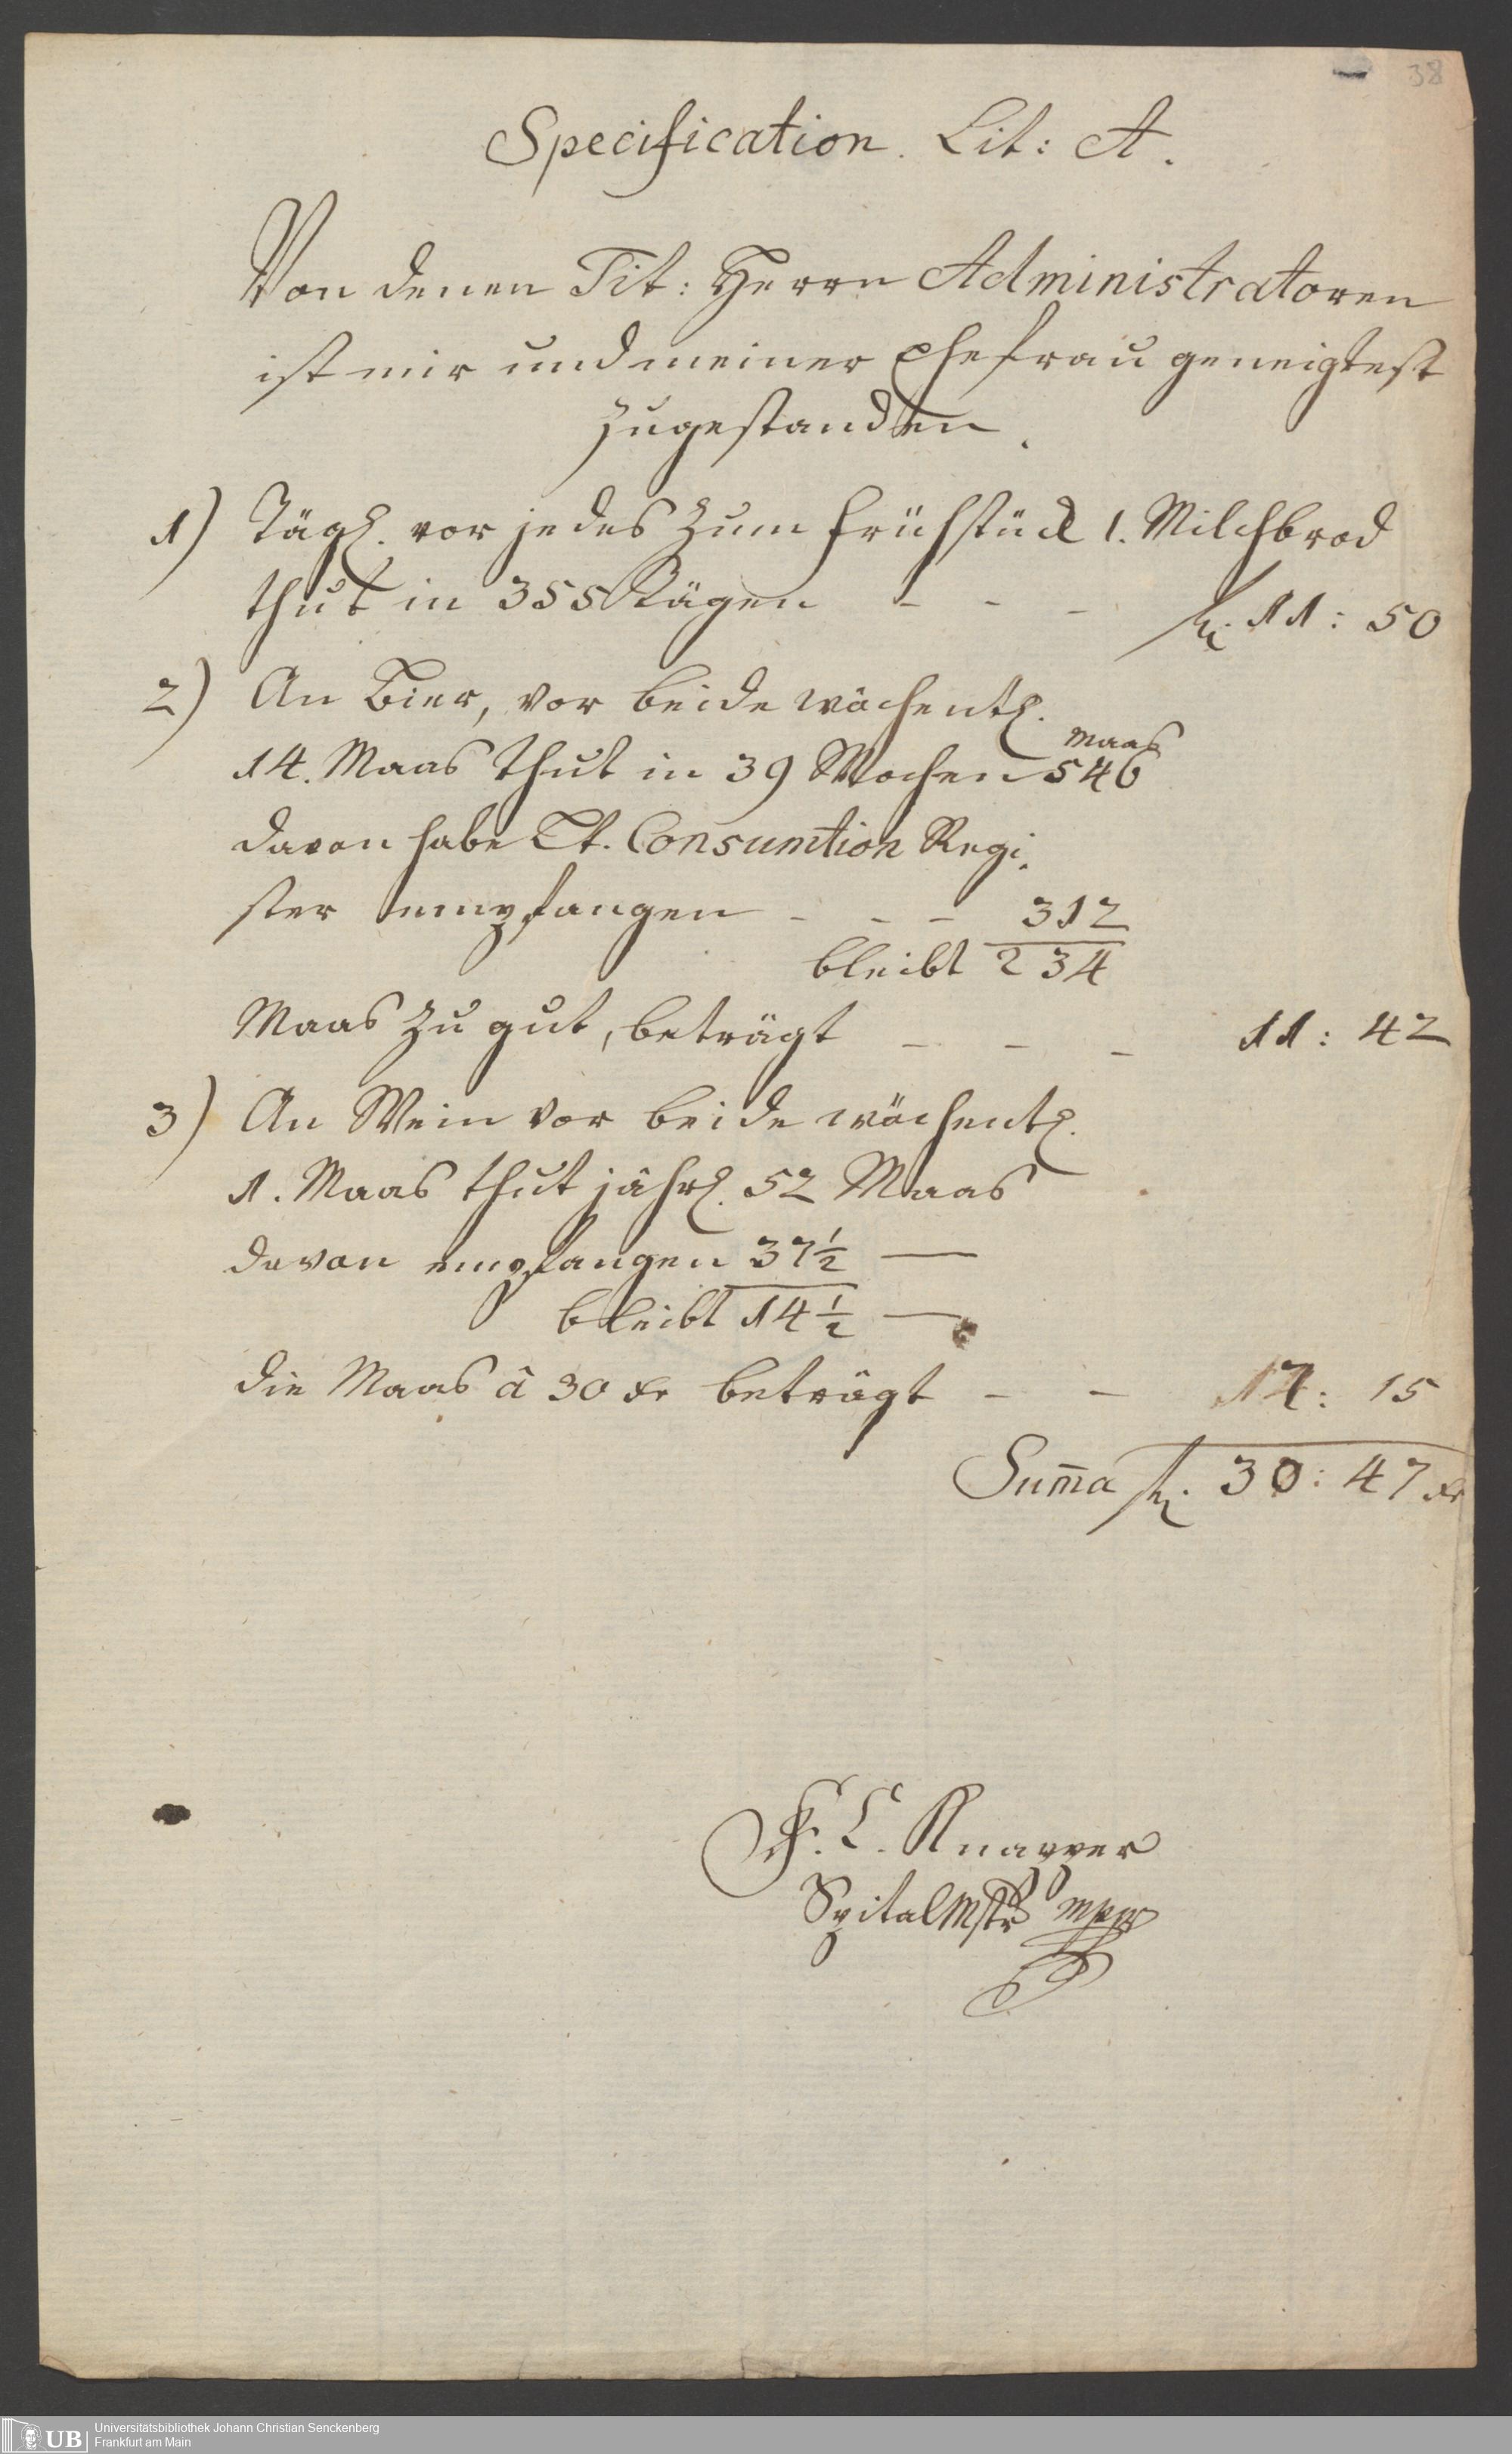 38
Specification. Lit: A.
Von denen Tit: Herrn Administratoren
ist mir und meiner Ehefrau geneigtest
zugestanden.
1) Tägl. vor jedes zum Frühstück 1. Milchbrod
thut in 355 Tägen - - - fl. 11: 50
2) An Bier, vor beide wöchentl.
14. Maas thut in 39 Wochen 546 Maas
davon habe Lt. Consumtion Regi-
ster empfangen - - - 312
bleibt 234
Maas zu gut, beträgt - - - 11: 42
3) An Wein vor beide wöchentl.
1. Maas thut jährl. 52 Maas
davon empfangen 37½ —
bleibt 14½ —
die Maas â 30 xr beträgt - - 7: 15
Sum̅a fl. 30: 47 xr
F. C. Knapper
SpitalMstr mpr
UB
Universitätsbibliothek Johann Christian Senckenberg
Frankfurt am Main